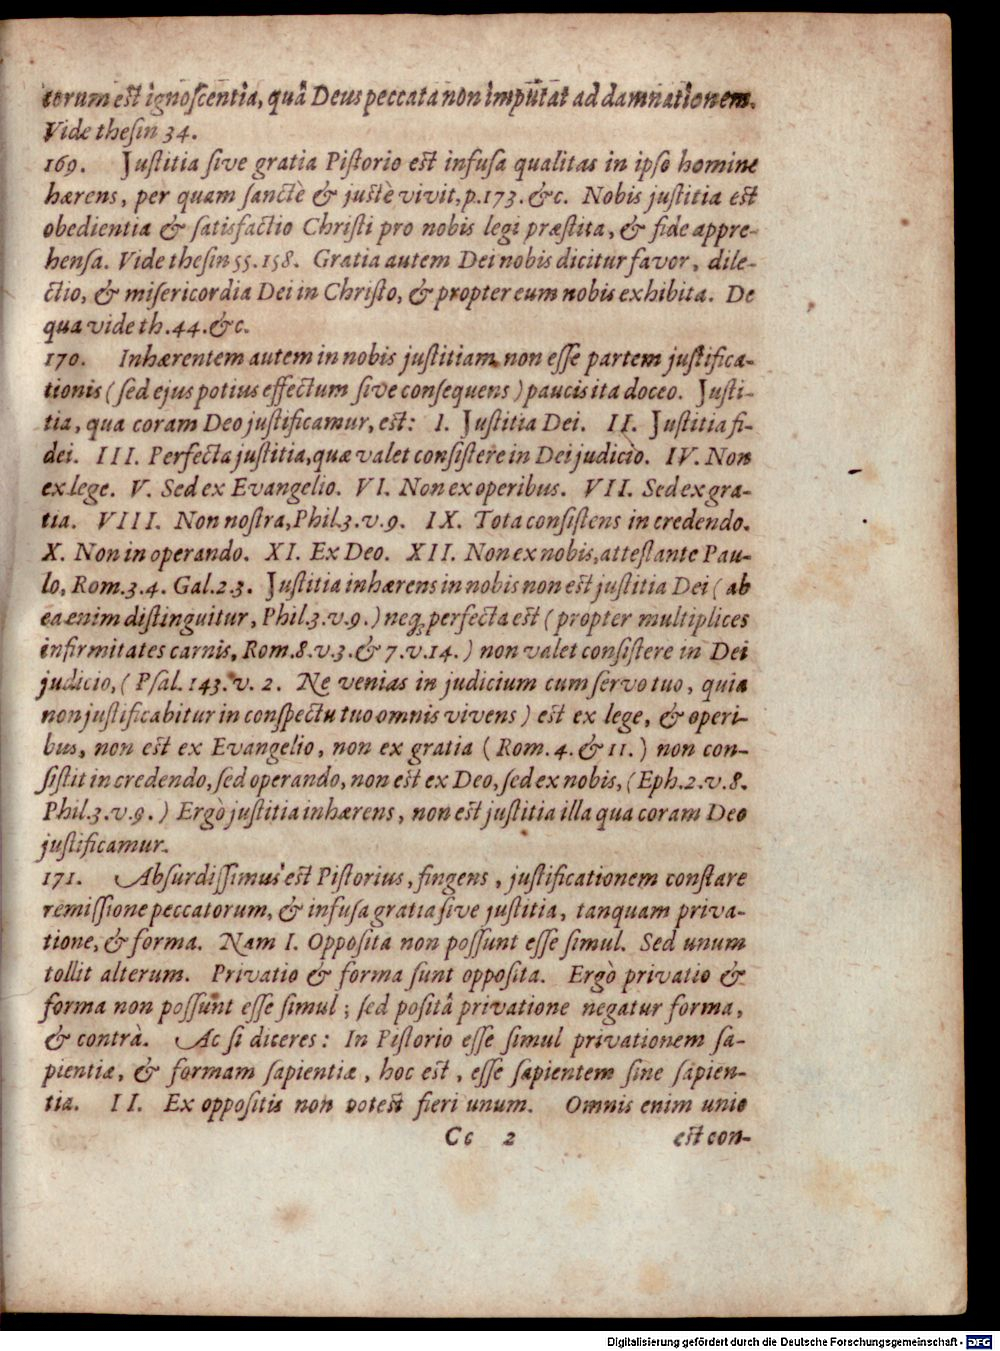 torum est ignoscentia, quâ Deus peccata non imputat ad damnationem.
Vide thesin 34.
169. Justitia sive gratia Pistorio est infusa qualitas in ipso homine
hærens, per quam sanctè & justè vivit, p. 173. &c. Nobis justitia est
obedientia & satisfactio Christi pro nobis legi præstita, & fide appre-
hensa. Vide thesin 55. 158. Gratia autem Dei nobis dicitur favor, dile-
ctio, & misericordia Dei in Christo, & propter eum nobis exhibita. De
qua vide th. 44. &c.
170. Inhærentem autem in nobis justitiam non esse partem justifica-
tionis (sed ejus potius effectum sive consequens) paucis ita doceo. Justi-
tia, qua coram Deo justificamur, est: I. Justitia Dei. II. Justitia fi-
dei. III. Perfecta justitia, quæ valet consistere in Dei judicio. IV. Non
ex lege. V. Sed ex Evangelio. VI. Non ex operibus. VII. Sed ex gra-
tia. VIII. Non nostra, Phil. 3. v. 9. IX. Tota consistens in credendo.
X. Non in operando. XI. Ex Deo. XII. Non ex nobis, attestante Pau-
lo, Rom. 3. 4. Gal. 2 3. Justitia inhærens in nobis non est justitia Dei (ab
ea enim distinguitur, Phil. 3. v. 9.) neq; perfecta est (propter multiplices
infirmitates carnis, Rom. 8. v. 3. & 7. v. 14.) non valet consistere in Dei
judicio, (Psal. 143. v. 2. Ne venias in judicium cum servo tuo, quia
non justificabitur in conspectu tuo omnis vivens) est ex lege, & operi-
bus, non est ex Evangelio, non ex gratia (Rom. 4. & 11.) non con-
sistit in credendo, sed operando, non est ex Deo, sed ex nobis, (Eph. 2. v. 8.
Phil. 3. v. 9.) Ergò justitia inhærens, non est justitia illa qua coram Deo
justificamur.
171. Absurdissimus est Pistorius, fingens, justificationem constare
remissione peccatorum, & infusa gratia sive justitia, tanquam priva-
tione, & forma. Nam I. Opposita non possunt esse simul. Sed unum
tollit alterum. Privatio & forma sunt opposita. Ergò privatio &
forma non possunt esse simul; sed positâ privatione negatur forma,
& contrà. Ac si diceres: In Pistorio esse simul privationem sa-
pientiæ, & formam sapientiæ, hoc est, esse sapientem sine sapien-
tia. II. Ex oppositis non potest fieri unum. Omnis enim unio
Cc 2 est con-
Digitalisierung gefördert durch die Deutsche Forschungsgemeinschaft - DFG